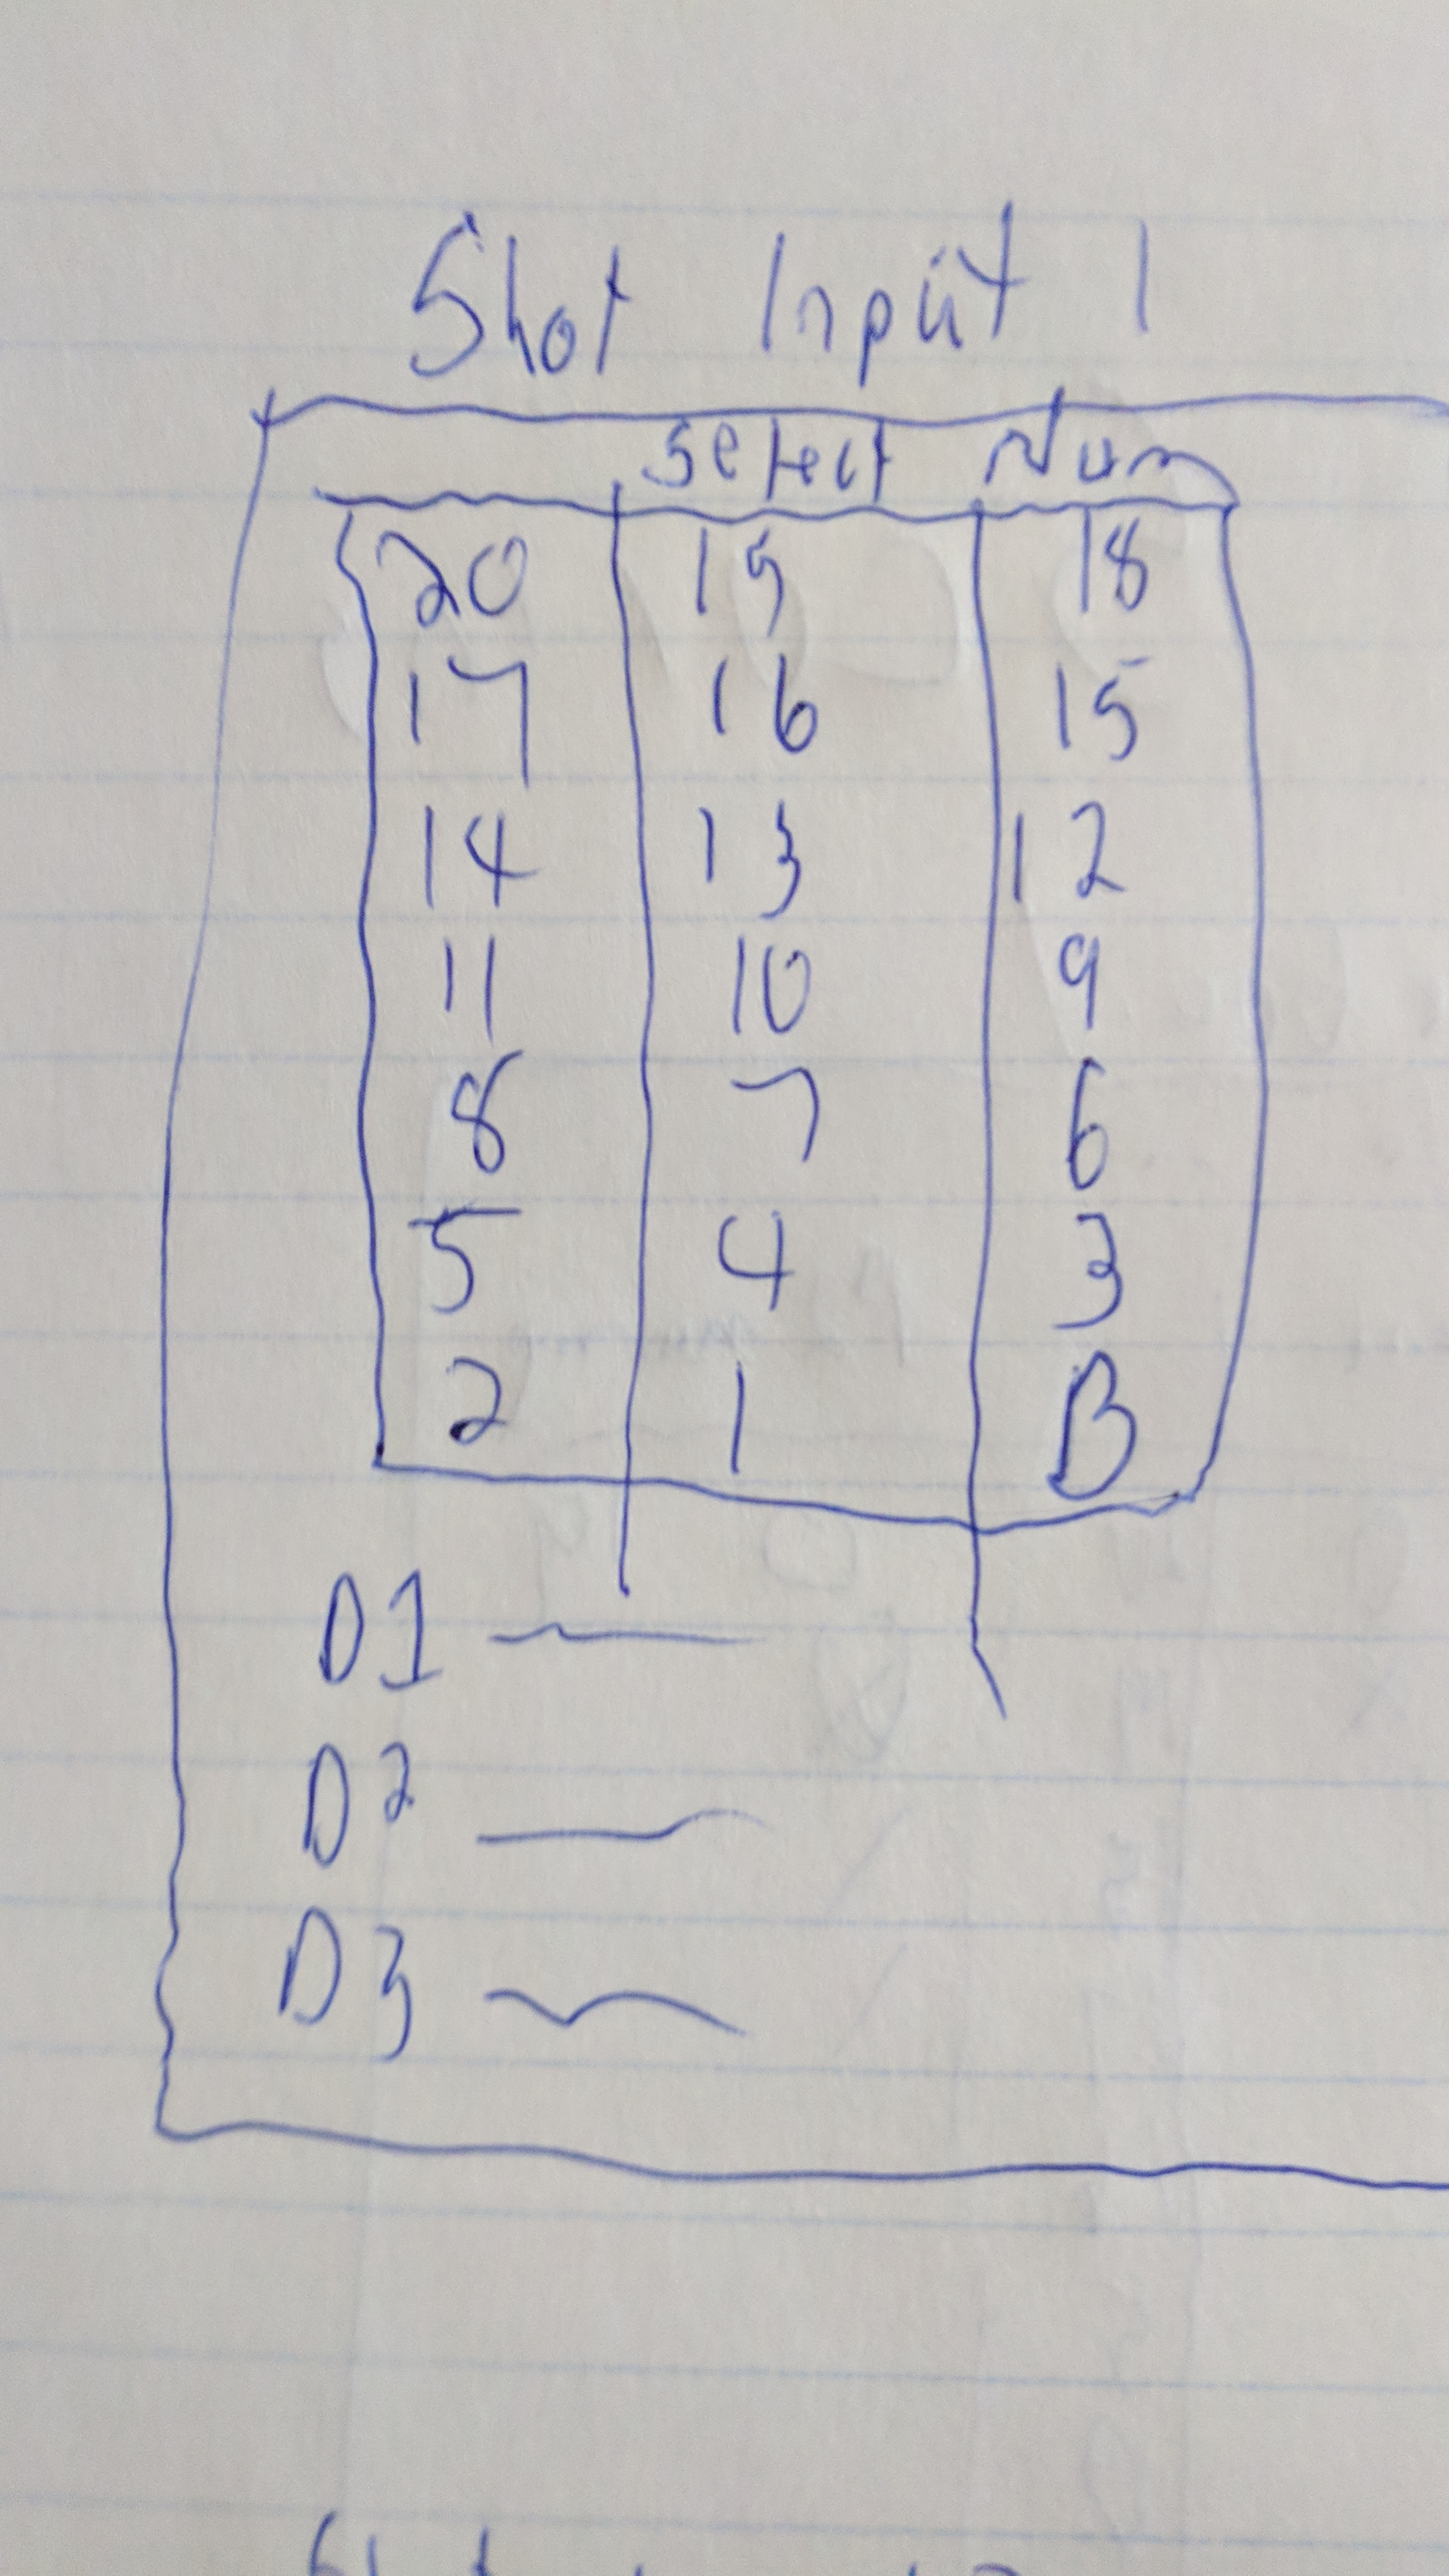 Shot Input 1
Select Num
20 19 18
17 16 15
14 13 12
11 10 9
8 7 6
5 4 3
2 1 B
D1
D2
D3